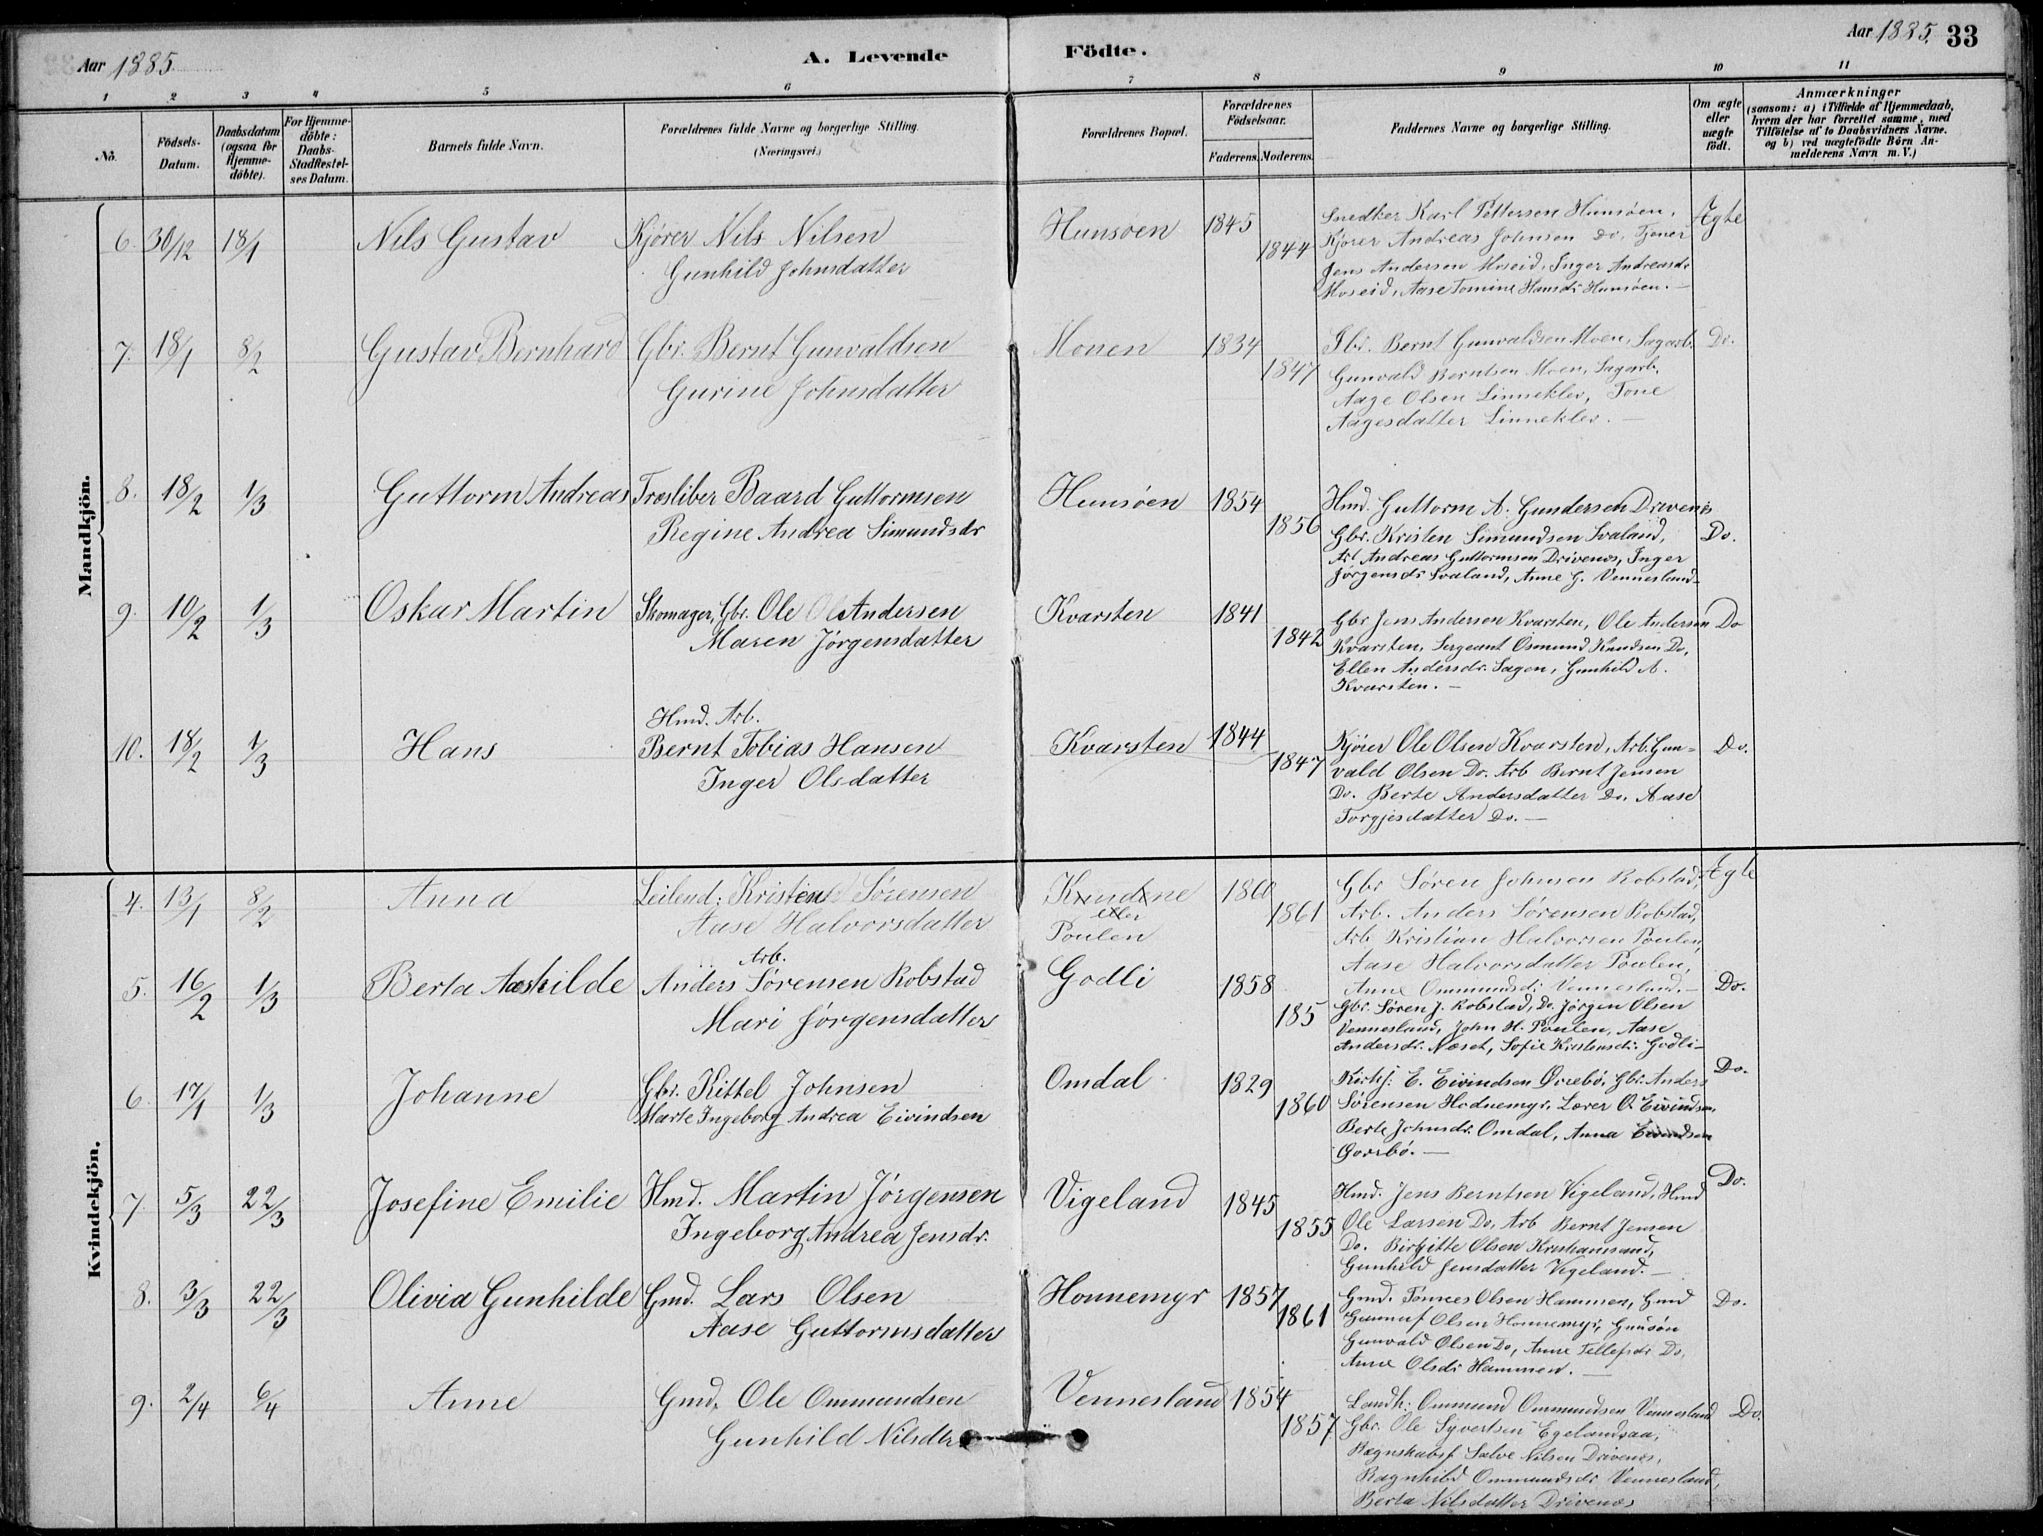 Aar 1885
A. Levende
Födte.
Aar 1885. 33
1 2 3 4 5 6 7 8 9 10 11
No.
Födsels-
Datum.
Daabsdatum
(ogsaa for
Hjemme-
döbte).
For Hjemme-
döbte:
Daabs-
Stadfæstel-
ses Datum.
Barnets fulde Navn.
Forældrenes fulde Navne og borgerlige Stilling.
(Næringsvei.)
Forældrenes Bopæl.
Forældrenes
Födselsaar.
Faderens. Moderens.
Faddernes Navne og borgerlige Stilling.
Om ægte
eller
uægte
födt.
Anmærkninger
(saasom: a) i Tilfælde af Hjemmedaab,
hvem der har forrettet samme, med
Tilföielse af to Daabsvidners Navne.
og b) ved uægtefödte Börn An-
melderens Navn m.V.)
Mandkjön.
6. 30/12 18/1 Nils Gustav
Kjører Nils Nilsen
Gunhild Johnsdatter
Hunsøen 1845
1844
Snedker Karl Pettersen Hunsøen,
Kjører Andreas Johnsen Do. Tjener
Jens Andersen Moseid, Inger Andreasdr
Moseid, Aase Tomine Hansdr. Hunsøen. —
Ægte
7. 18/1 8/2 Gustav Bernhard
Gbr. Bernt Gunvaldsen
Gurine Johnsdatter
Moen 1834
1847
Gbr. Bernt Gunvaldsen Moen, Sagarb.
Gunvald Berntsen Moen, Sagarb.
Aage Olsen Linneklev, Tone
Aagesdatter Linneklev. —
Do.
8. 18/2 1/3 Guttorm Andreas
Træsliber Baard Guttormsen
Regine Andrea Simundsdr
Hunsøen 1854
1856
Hmd. Guttorm A. Gundersen Drivenes
Gbr. Kristen Simundsen Svaland,
Arb. Andreas Guttormsen Drivenes, Inger
Jørgensdr Svaland, Anne G. Vennesland
Do.
9. 10/2 1/3 Oskar Martin
Skomager, Gbr. Ole Andersen
Maren Jørgensdatter
Kvarsten 1841
1842
Gbr. Jens Andersen Kvarsten, Ole Andersen
Kvarsten, Sergeant Osmund Knudsen Do.
Ellen Andersdr. Sagen, Gunhild A.
Kvarsten. —
Do
10. 18/2 1/3 Hans
Hmd. Arb.
Bernt Tobias Hansen
Inger Olsdatter
Kvarsten 1844
1847
Kjører Ole Olsen Kvarsten, Arb. Gun-
vald Olsen Do. Arb Bernt Jensen
Do. Berte Andersdatter Do. Aase
Torgjesdatter Do. —
Do.
Kvindekjön.
4. 13/1 8/2 Anna
Leilend: Kristen Sørensen
Aase Halvorsdatter
eller
Poulen
1860
1861
Gbr Søren Johnsen Robstad,
Arb. Anders Sørensen Robstad,
Arb Kristian Halvorsen Poulen,
Aase Halvorsdatter Poulen,
Anne Ommundsdr Vennesland. —
Ægte
5. 16/2 1/3 Berta Aashilde
Arb.
Anders Sørensen Robstad
Mari Jørgensdatter
Godli 1858
185
Gbr. Søren J. Robstad, Do. Jørgen Olsen
Vennesland, John H. Poulen, Aase
Andersdr. Næset, Sofie Kristensdr. Godli —
Do.
6. 17/1 1/3 Johanne
Gbr. Kittel Johnsen
Marte Ingeborg Andrea Eivindsen
Omdal 1829
1860
Kirkes. E. Eivindsen Øvrebø, Gbr. Anders
Sørensen Hodnemyr, Lærer O. Eivindsen,
Berte Johnsdr. Omdal, Anna Eivindsen
Øvrebø. —
Do.
7. 5/3 22/3 Josefine Emilie
Hmd. Martin Jørgensen
Ingeborg Andrea Jensdr.
Vigeland 1845
1855
Hmd. Jens Berntsen Vigeland, Hmd
Ole Larsen Do, Arb Bernt Jensen
Do. Birgitte Olsen Kristiansand,
Gunhild Jensdatter Vigeland. —
Do.
8. 3/3 22/3 Olivia Gunhilde
Gmd. Lars Olsen
Aase Guttormsdatter
Honnemyr 1857
1861
Gmd. Tønnes Olsen Hammen, Gmd
Gunnuf Olsen Honnemyr, Gausøn
Gunvald Olsen Do, Anne Tellefsdr Do.
Anne Olsdr Hammen. —
Do.
9. 2/4 6/4 Anne
Gmd. Ole Ommundsen
Gunhild Nilsdtr
Vennesland 1854
1857
Landh: Ommund Ommundsen Vennesland
Gbr. Ole Syvertsen Egelandsaa,
Rægnskabsf. Salve Nilsen Drivenes,
Ragnhild Ommundsdr Vennesland,
Berta Nilsdatter Drivenes
Do